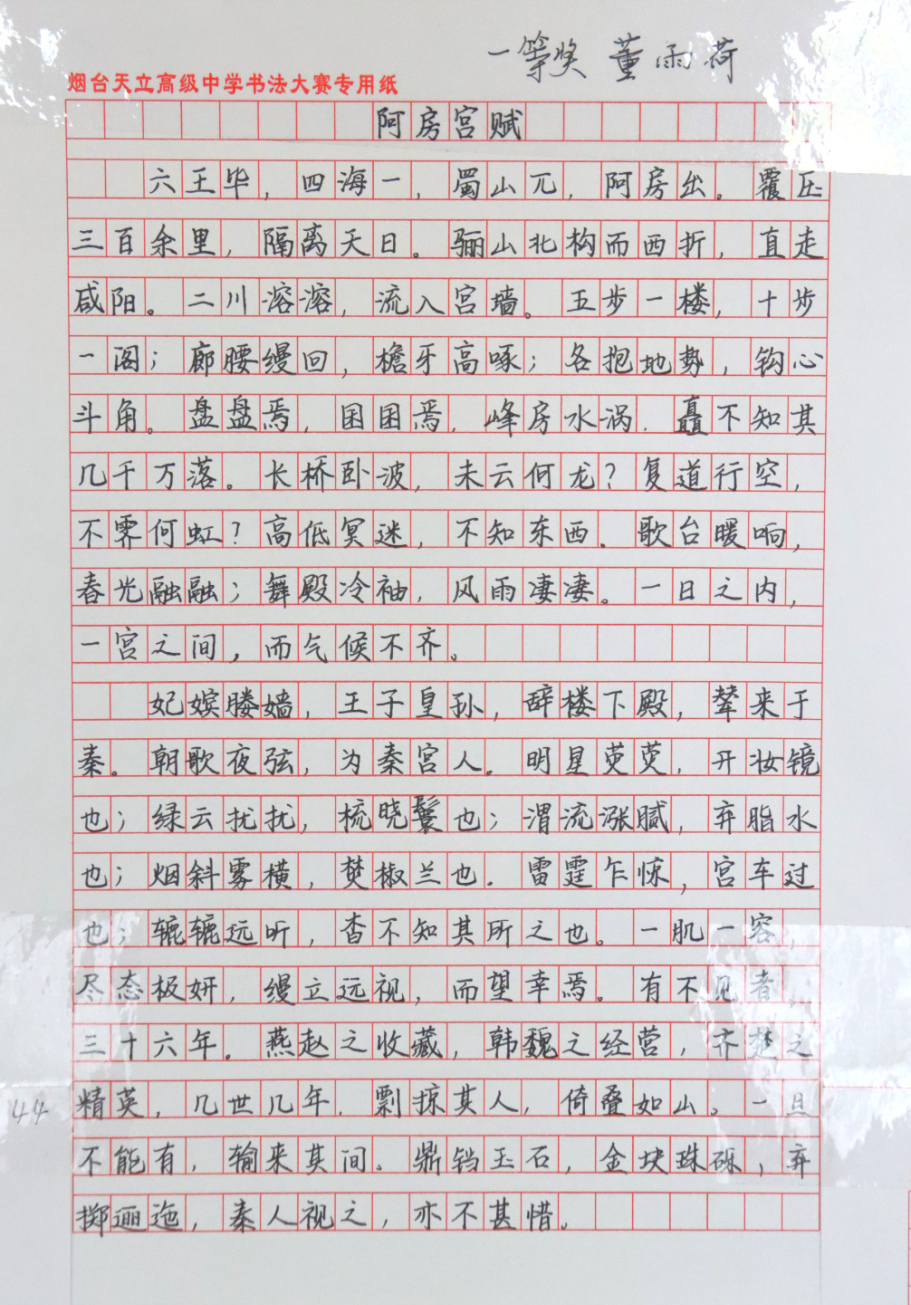 一等奖 董雨荷
烟台天立高级中学书法大赛专用纸
阿房宫赋
六王毕，四海一，蜀山兀，阿房出。覆压
三百余里，隔离天日。骊山北构而西折，直走
咸阳。二川溶溶，流入宫墙。五步一楼，十步
一阁；廊腰缦回，檐牙高啄；各抱地势，钩心
斗角。盘盘焉，囷囷焉，峰房水涡，矗不知其
几千万落。长桥卧波，未云何龙？复道行空，
不霁何虹？高低冥迷，不知东西。歌台暖响，
春光融融；舞殿冷袖，风雨凄凄。一日之内，
一宫之间，而气候不齐。
妃嫔媵嫱，王子皇孙，辞楼下殿，辇来于
秦。朝歌夜弦，为秦宫人。明星荧荧，开妆镜
也；绿云扰扰，梳晓鬟也；渭流涨腻，弃脂水
也；烟斜雾横，焚椒兰也。雷霆乍惊，宫车过
也；辘辘远听，杳不知其所之也。一肌一容，
尽态极妍，缦立远视，而望幸焉。有不见者，
三十六年。燕赵之收藏，韩魏之经营，齐楚之
精英，几世几年，剽掠其人，倚叠如山。一旦
不能有，输来其间。鼎铛玉石，金块珠砾，弃
掷逦迤，秦人视之，亦不甚惜。
44